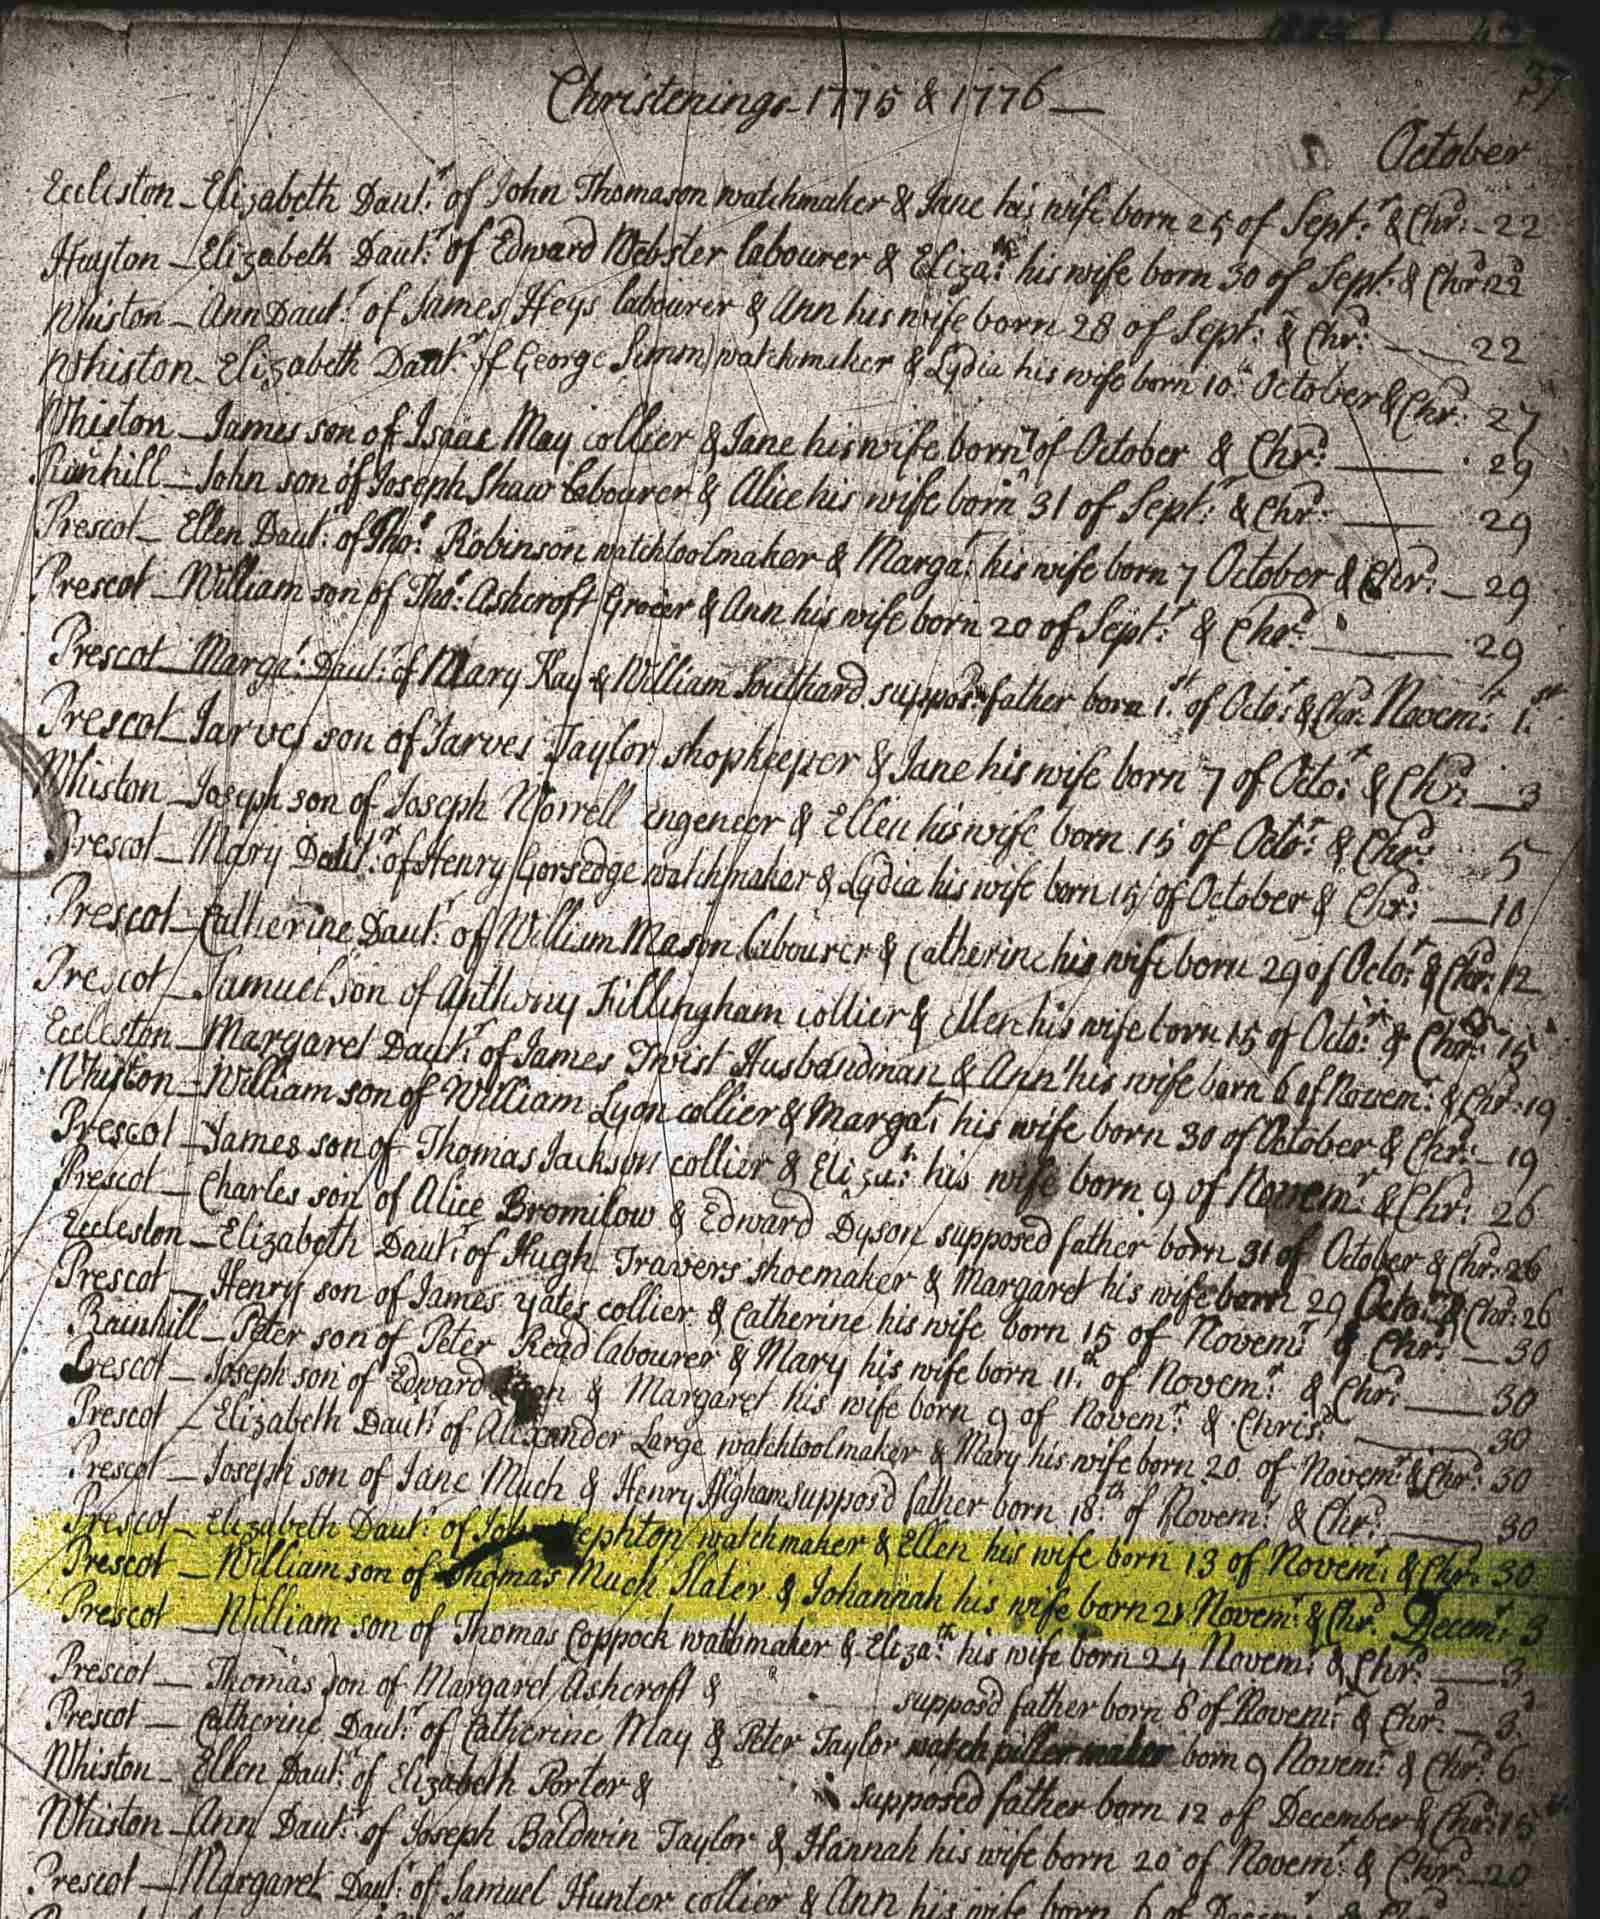 37
Christenings 1775 & 1776
October
Eccleston - Elizabeth Daut.r of John Thomason watchmaker & Jane his wife born 25 of Sept.r & Chr.d - 22
Huyton - Elizabeth Daut.r of Edward Webster labourer & Eliza.th his wife born 30 of Sept.r & Chr.d 22
Whiston - Ann Daut.r of James Heys labourer & Ann his wife born 28 of Sept.r & Chr.d - 22
Whiston - Elizabeth Daut.r of George Simm watchmaker & Lydia his wife born 10.th October & Chr.d 27
Whiston - James son of Isaac May collier & Jane his wife born 7 of October & Chr.d - 29
Rainhill - John son of Joseph Shaw labourer & Alice his wife born 31 of Sept.r & Chr.d - 29
Prescot - Ellen Daut.r of Tho.s Robinson watchtoolmaker & Marga.t his wife born 7 October & Chr.d - 29
Prescot - William son of Tho.s Ashcroft Grocer & Ann his wife born 20 of Sept.r & Chr.d - 29
Prescot - Marga.t Daut.r of Mary Kay & William Southard suppos.d father born 1.st of Octo.r & Chr.d Novem.r 1.st
Prescot - Jarves son of Jarves Taylor shopkeeper & Jane his wife born 7 of Octo.r & Chr.d - 3
Whiston - Joseph son of Joseph Norrell engeneer & Ellen his wife born 15 of Octo.r & Chr.d 5
Prescot - Mary Daut.r of Henry Gorsedge watchmaker & Lydia his wife born 15 of October & Chr.d - 10
Prescot - Catherine Daut.r of William Mason labourer & Catherine his wife born 29 of Octo.r & Chr.d 12
Prescot - Samuel son of Anthony Fillingham collier & Ellen his wife born 15 of Octo.r & Chr.d 15
Eccleston - Margaret Daut.r of James Twist Husbandman & Ann his wife born 6 of Novem.r & Chr.d 19
Whiston - William son of William Lyon collier & Marga.t his wife born 30 of October & Chr.d - 19
Prescot - James son of Thomas Jackson collier & Eliza.th his wife born 9 of Novem.r & Chr.d 26
Prescot - Charles son of Alice Bromilow & Edward Dyson supposed father born 31 of October & Chr.d 26
Eccleston - Elizabeth Daut.r of Hugh Travers shoemaker & Margaret his wife born 29 Octo.r & Chr.d 26
Prescot - Henry son of James Yates collier & Catherine his wife born 15 of Novem.r & Chr.d - 30
Rainhill - Peter son of Peter Read labourer & Mary his wife born 11.th of Novem.r & Chr.d - 30
Prescot - Joseph son of Edward & Margaret his wife born 9 of Novem.r & Chris.d - 30
Prescot - Elizabeth Daut.r of Alexander Large watchtoolmaker & Mary his wife born 20 of Novem.r & Chr.d 30
Prescot - Joseph son of Jane Much & Henry Higham suppos'd father born 18.th of Novem.r & Chr.d - 30
Prescot - Elizabeth Daut.r of John Sephton watchmaker & Ellen his wife born 13 of Novem.r & Chr.d 30
Prescot - William son of Thomas Much Slater & Johannah his wife born 21 Novem.r & Chr.d Decem.r 3
Prescot - William son of Thomas Coppock watchmaker & Eliza.th his wife born 24 Novem.r & Chr.d - 3
Prescot - Thomas son of Margaret Ashcroft & suppos'd father born 8 of Novem.r & Chr.d - 3
Prescot - Catherine Daut.r of Catherine May & Peter Taylor watch piller maker born 9 Novem.r & Chr.d 6
Whiston - Ellen Daut.r of Elizabeth Porter & supposed father born 12 of December & Chr.d 15
Whiston - Ann Daut.r of Joseph Baldwin Taylor & Hannah his wife born 20 of Novem.r & Chr.d - 20
Prescot - Margaret Daut.r of Samuel Hunter collier & Ann his wife born 6 of Decem